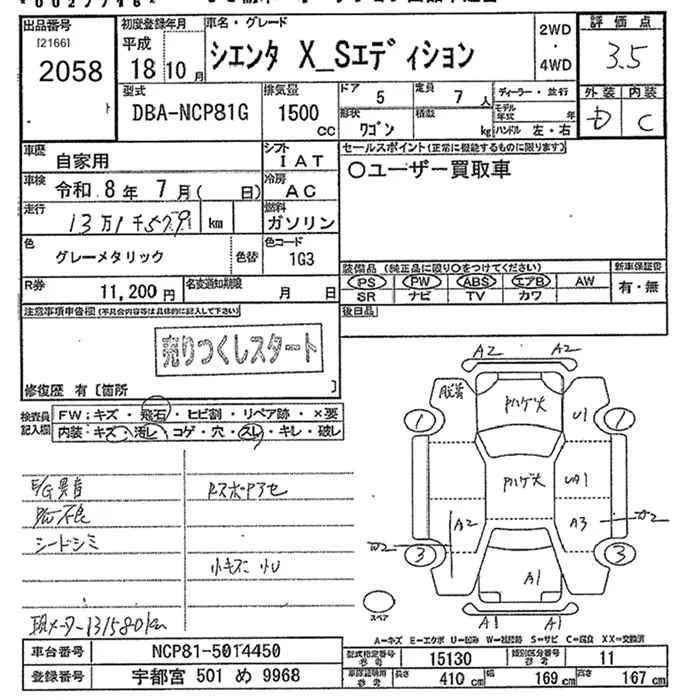 出品番号
[2166]
2058
初度登録年月
平成
18年10月
車名・グレード
シエンタ X_Sエディション
2WD
・
4WD
評価点
3.5
外装 内装
D C
型式
DBA-NCP81G
排気量
1500 CC
ドア 5
定員 7 人
ディーラー・並行
モデル年式 年
形状 ワゴン
積載 kg
ハンドル 左・右
車歴 自家用
シフト IAT
セールスポイント(正常に機能するものに限ります)
○ユーザー買取車
車検 令和 8年 7月( 日)
冷房 AC
走行 13万1千579 km
燃料 ガソリン
色 グレーメタリック 色替
色コード 1G3
装備品(純正品に限り○をつけてください)
PS PW ABS エアB AW
SR ナビ TV カワ
新車保証書
有・無
R券 11,200円
名変通知期限 月 日
後日品
注意事項申告欄(不具合内容等は具体的に記入して下さい)
売りつくしスタート
修復歴 有〔箇所
検査員記入欄
FW:キズ・飛石・ヒビ割・リペア跡・×要
内装:キズ・汚レ・コゲ・穴・スレ・キレ・破レ
E/G異音
PW不良
シートシミ
RスポPアセ
小キズ 小U
現メーター131580km
A2 A2
脱着
PハゲX
U1
1 1
PハゲX
UA1
A2
A3
W2
3 3
A1
A1 A1
スペア
A=キズ E=エクボ U=凹み W=波跡 S=サビ C=腐食 XX=交換済
車台番号 NCP81-5014450
型式指定番号 参考 15130
類別区分番号 参考 11
登録番号 宇都宮 501 め 9968
車庫証明用 参考 長さ 410 cm 幅 169 cm 高さ 167 cm